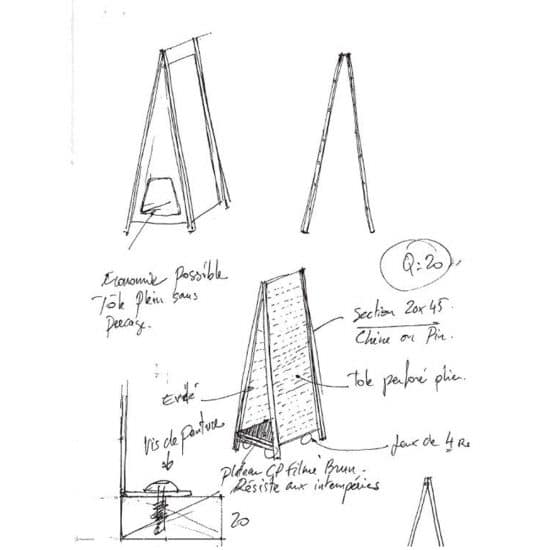 Q: 20
Economie possible
Tôle plein sans
percage.
Section 20x45
Chêne ou Pin.
Tole perforé plier.
Evidé
Vis de
Jeux de 4
Plateau CP Filmé Brun.
Résiste aux intempéries
20